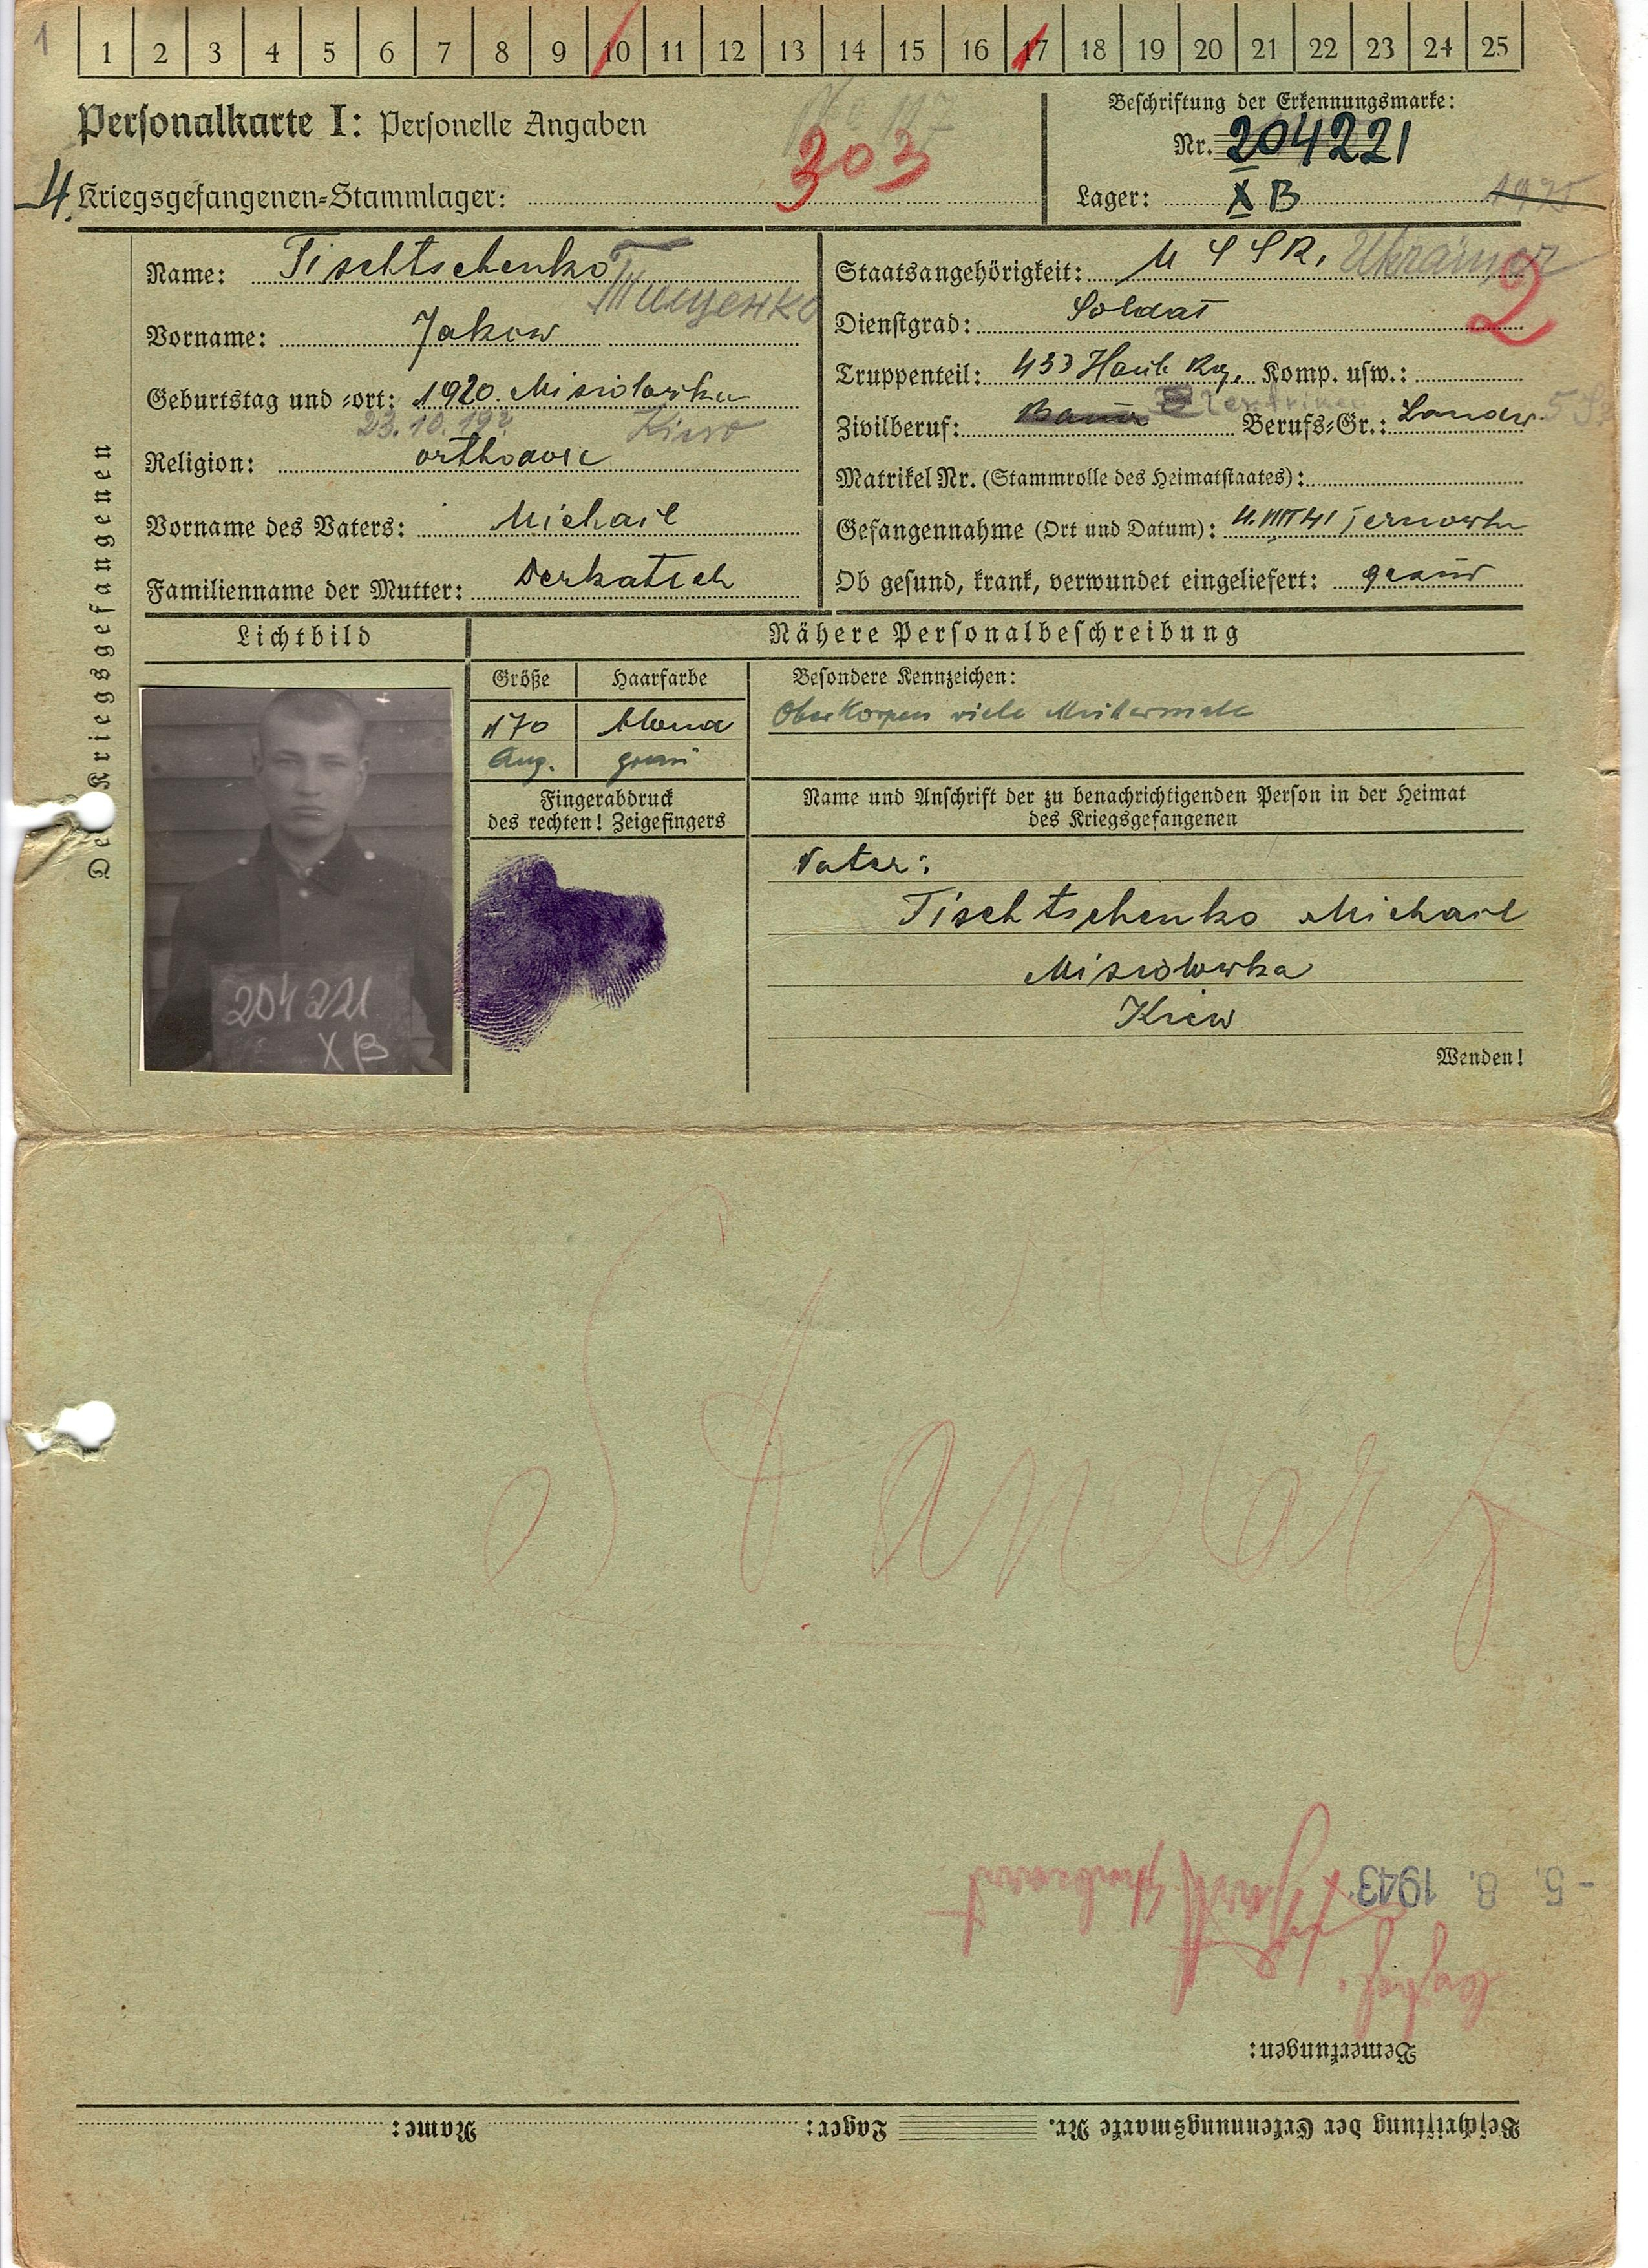 1
1 2 3 4 5 6 7 8 9 10 11 12 13 14 15 16 17 18 19 20 21 22 23 24 25
Personalkarte I: Personelle Angaben
303
Beschriftung der Erkennungsmarke:
Nr. 204221
4 Kriegsgefangenen-Stammlager:
Lager: X B
Des Kriegsgefangenen
Name: Tischtschenko Тищенко
Vorname: Jakow
Geburtstag und -ort: 1920. Misiolowka
23.10.19 Kiew
Religion: orthodox
Vorname des Vaters: Michail
Familienname der Mutter: Derkatsch
Staatsangehörigkeit: U S S R, Ukrainer
2
Dienstgrad: Soldat
Truppenteil: 433 Haub. Rg. Komp. usw.:
Zivilberuf: Bauer Elektriker Berufs-Gr.: Landw.
Matrikel Nr. (Stammrolle des Heimatstaates):
Gefangennahme (Ort und Datum): 4.VIII 41 Ternowka
Ob gesund, krank, verwundet eingeliefert: gesund
Lichtbild
Nähere Personalbeschreibung
Größe Haarfarbe
170 blond
Aug. grau
Besondere Kennzeichen:
Oberkörper viele Muttermale
Fingerabdruck
des rechten! Zeigefingers
Name und Anschrift der zu benachrichtigenden Person in der Heimat
des Kriegsgefangenen
204221
X B
Vater:
Tischtschenko Michail
Misiolowka
Kiew
Wenden!
Beschriftung der Erkennungsmarke Nr. Lager: Name:
Bemerkungen:
-5. 8. 1943